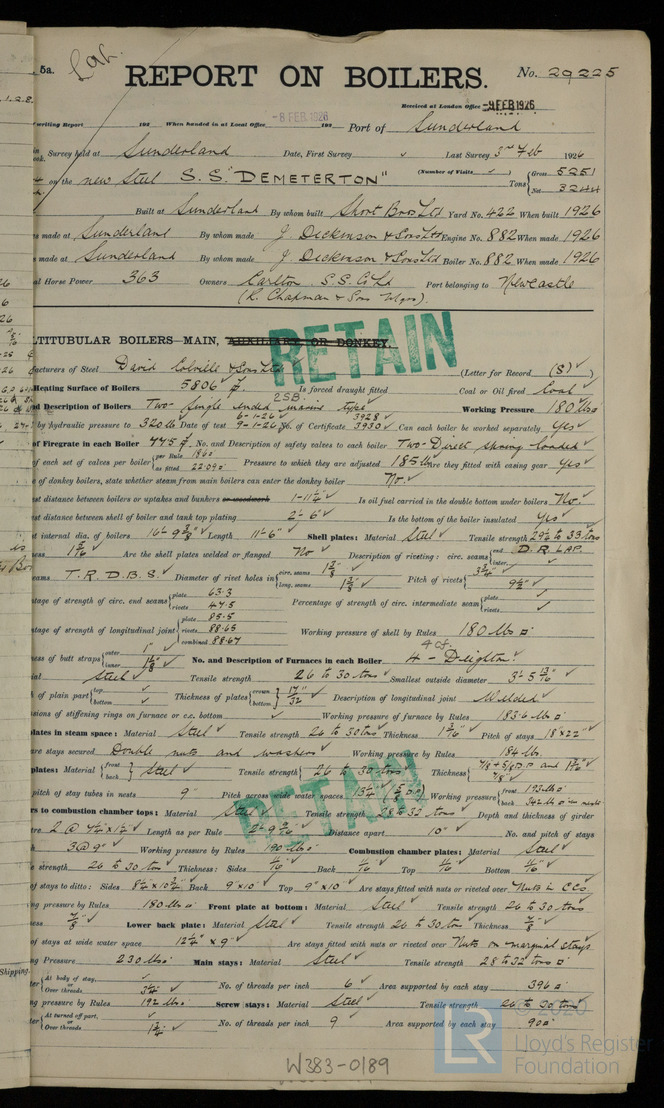 5a.
REPORT ON BOILERS.
No. 29225
Received at London Office -9 FEB 1926
-8 FEB. 1926
writing Report 192 When handed in at Local Office 192 Port of Sunderland
Survey held at Sunderland Date, First Survey Last Survey 3rd Feb 1926
on the new Steel S.S. "DEMETERTON" (Number of Visits) Tons Gross 5251 Net 3244
Built at Sunderland By whom built Short Bros Ltd Yard No. 422 When built 1926
s made at Sunderland By whom made J. Dickinson & Sons Ltd Engine No. 882 When made 1926
s made at Sunderland By whom made J. Dickinson & Sons Ltd Boiler No. 882 When made 1926
al Horse Power 363 Owners Carlton S.S. Co Ltd Port belonging to Newcastle
(R. Chapman & Sons Mgrs).
RETAIN
LTITUBULAR BOILERS—MAIN, AUXILIARY OR DONKEY.
facturers of Steel David Colville & Sons Ltd (Letter for Record (S))
Heating Surface of Boilers 5806 Is forced draught fitted Coal or Oil fired Coal
2SB.
nd Description of Boilers Two- Single ended marine type Working Pressure 180 lbs
by hydraulic pressure to 320 lb Date of test 6-1-26 9-1-26 No. of Certificate 3928 3930 Can each boiler be worked separately Yes
of Firegrate in each Boiler No. and Description of safety valves to each boiler Two- Direct spring loaded
of each set of valves per boiler per Rule as fitted 22.09 Pressure to which they are adjusted 185 lb Are they fitted with easing gear Yes
e of donkey boilers, state whether steam from main boilers can enter the donkey boiler No.
est distance between boilers or uptakes and bunkers or woodwork Is oil fuel carried in the double bottom under boilers No.
est distance between shell of boiler and tank top plating 2'- 6" Is the bottom of the boiler insulated Yes
st internal dia. of boilers Length 11'-6" Shell plates: Material Steel Tensile strength 29½ to 33 tons
Are the shell plates welded or flanged No Description of riveting: circ. seams end D.R. LAP. inter.
eams T.R.D.B.S. Diameter of rivet holes in circ. seams long. seams Pitch of rivets 9½"
ntage of strength of circ. end seams plate 63.3 rivets 47.5 Percentage of strength of circ. intermediate seam plate rivets
ntage of strength of longitudinal joint plate 85.5 rivets 88.65 combined 88.67 Working pressure of shell by Rules 180 lbs
ness of butt straps outer 1" inner No. and Description of Furnaces in each Boiler 4 - Deighton.
4 cf.
ial Steel Tensile strength 26 to 30 tons Smallest outside diameter
of plain part top bottom Thickness of plates crown bottom 17/32 Description of longitudinal joint Welded
sions of stiffening rings on furnace or c.c. bottom Working pressure of furnace by Rules 183.6 lbs
lates in steam space: Material Steel Tensile strength 26 to 30 tons Thickness Pitch of stays 18"x22"
are stays secured Double nuts and washers Working pressure by Rules 184 lb.
plates: Material front back Steel Tensile strength 26 to 30 tons Thickness
pitch of stay tubes in nests 9" Pitch across wide water spaces Working pressure front 193 lbs back
rs to combustion chamber tops: Material Steel Tensile strength 28 to 32 tons Depth and thickness of girder
RETAIN
tre Length as per Rule Distance apart 10" No. and pitch of stays
h 3 @ 9" Working pressure by Rules 190 lbs Combustion chamber plates: Material Steel
e strength 26 to 30 tons Thickness: Sides Back Top Bottom
of stays to ditto: Sides Back 9"x10" Top 9"x10" Are stays fitted with nuts or riveted over Nuts in CCs.
ng pressure by Rules 180 lbs Front plate at bottom: Material Steel Tensile strength 26 to 30 tons
ness 7/8 Lower back plate: Material Steel Tensile strength 26 to 30 tons Thickness 7/8
of stays at wide water space Are stays fitted with nuts or riveted over Nuts on marginal stays
g Pressure 230 lbs Main stays: Material Steel Tensile strength 28 to 32 tons
eter At body of stay, or Over threads No. of threads per inch 6 Area supported by each stay 396
ng pressure by Rules 192 lbs Screw stays: Material Steel Tensile strength 26 to 30 tons
ter At turned off part, or Over threads No. of threads per inch 9 Area supported by each stay 90
Shipping.
© 2020
LR
Lloyd's Register
Foundation
W383-0189